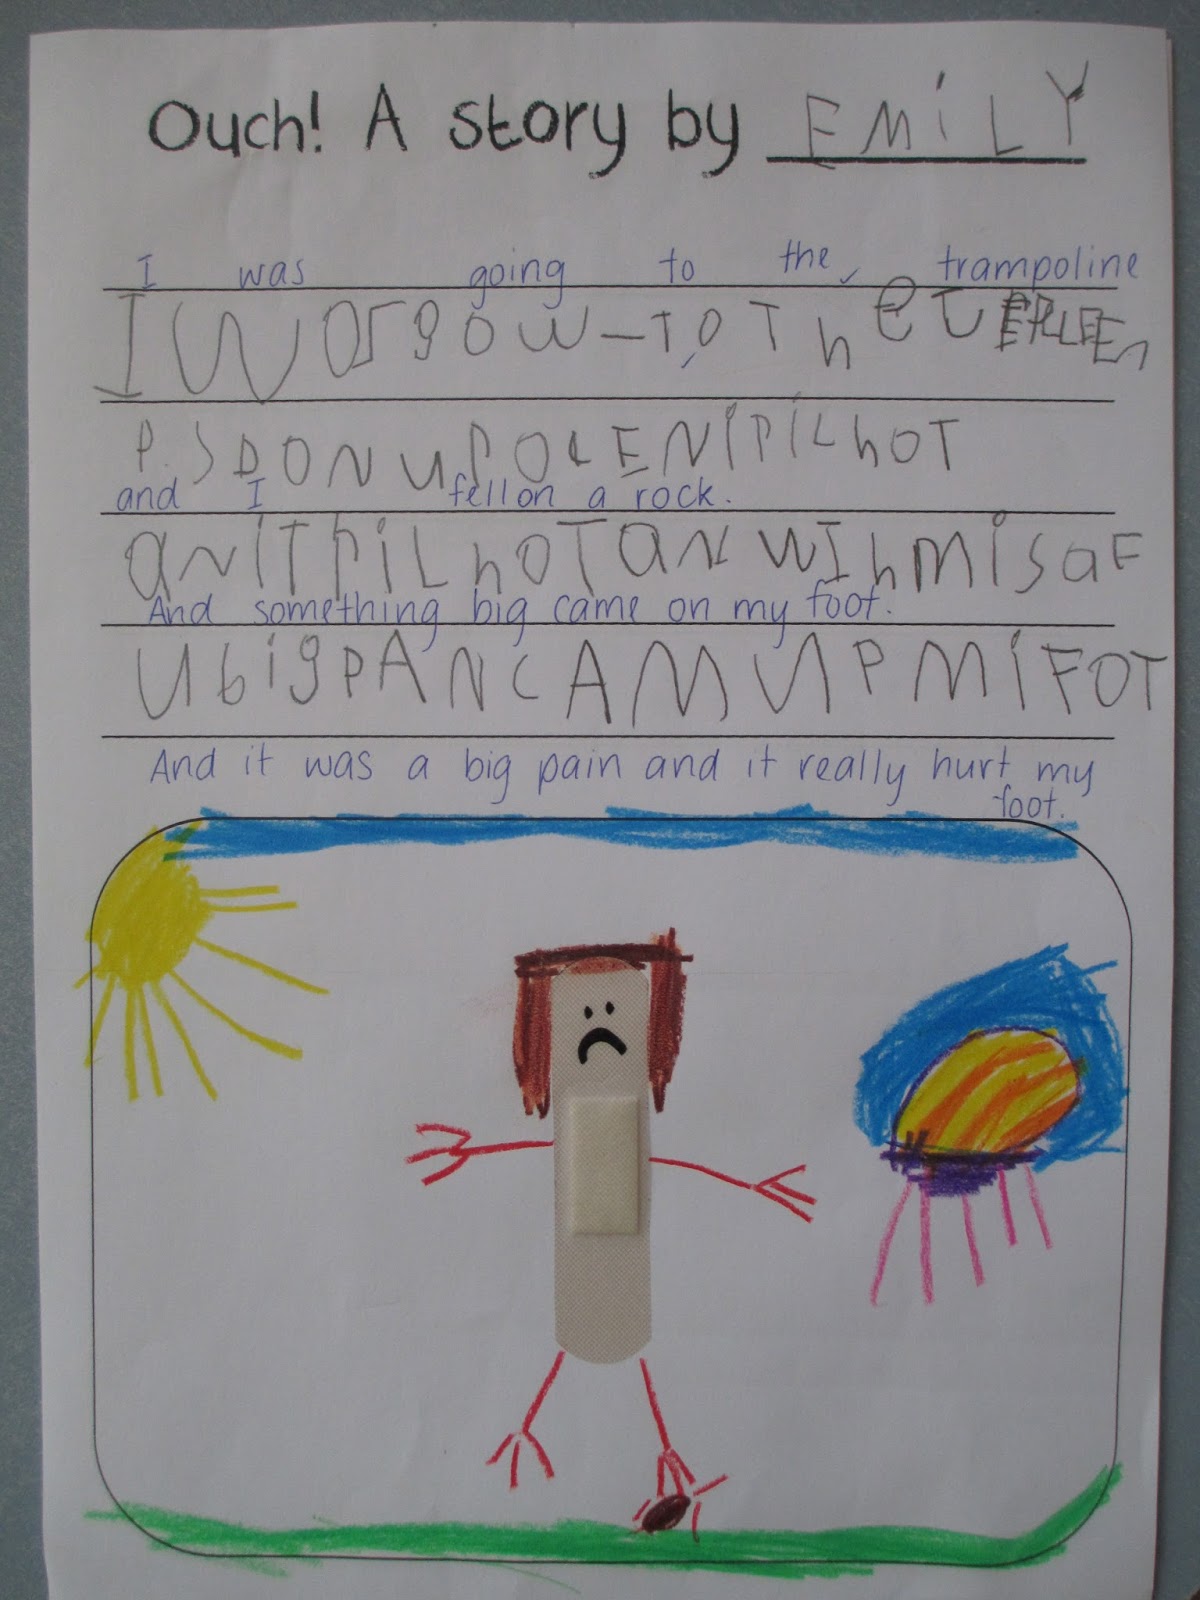 Ouch! A story by EMiLY
I was going to the trampoline
I WOS gOW-TO The T
P.SDONUPOLENIPiLhOT
and I fell on a rock.
aNiTPiLhOTaN WIhMiSaF
And something big came on my foot.
UbigPANCAMUPMiFOT
And it was a big pain and it really hurt my
foot.